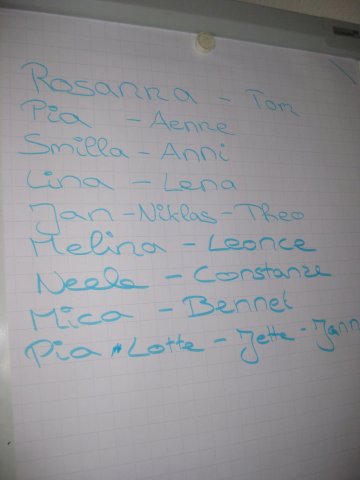 Rosanna - Tom
Pia - Aenne
Smilla - Anni
Lina - Lena
Jan-Niklas-Theo
Melina - Leonce
Neele - Constanze
Mica - Bennet
Pia-Lotte - Jette - Jann